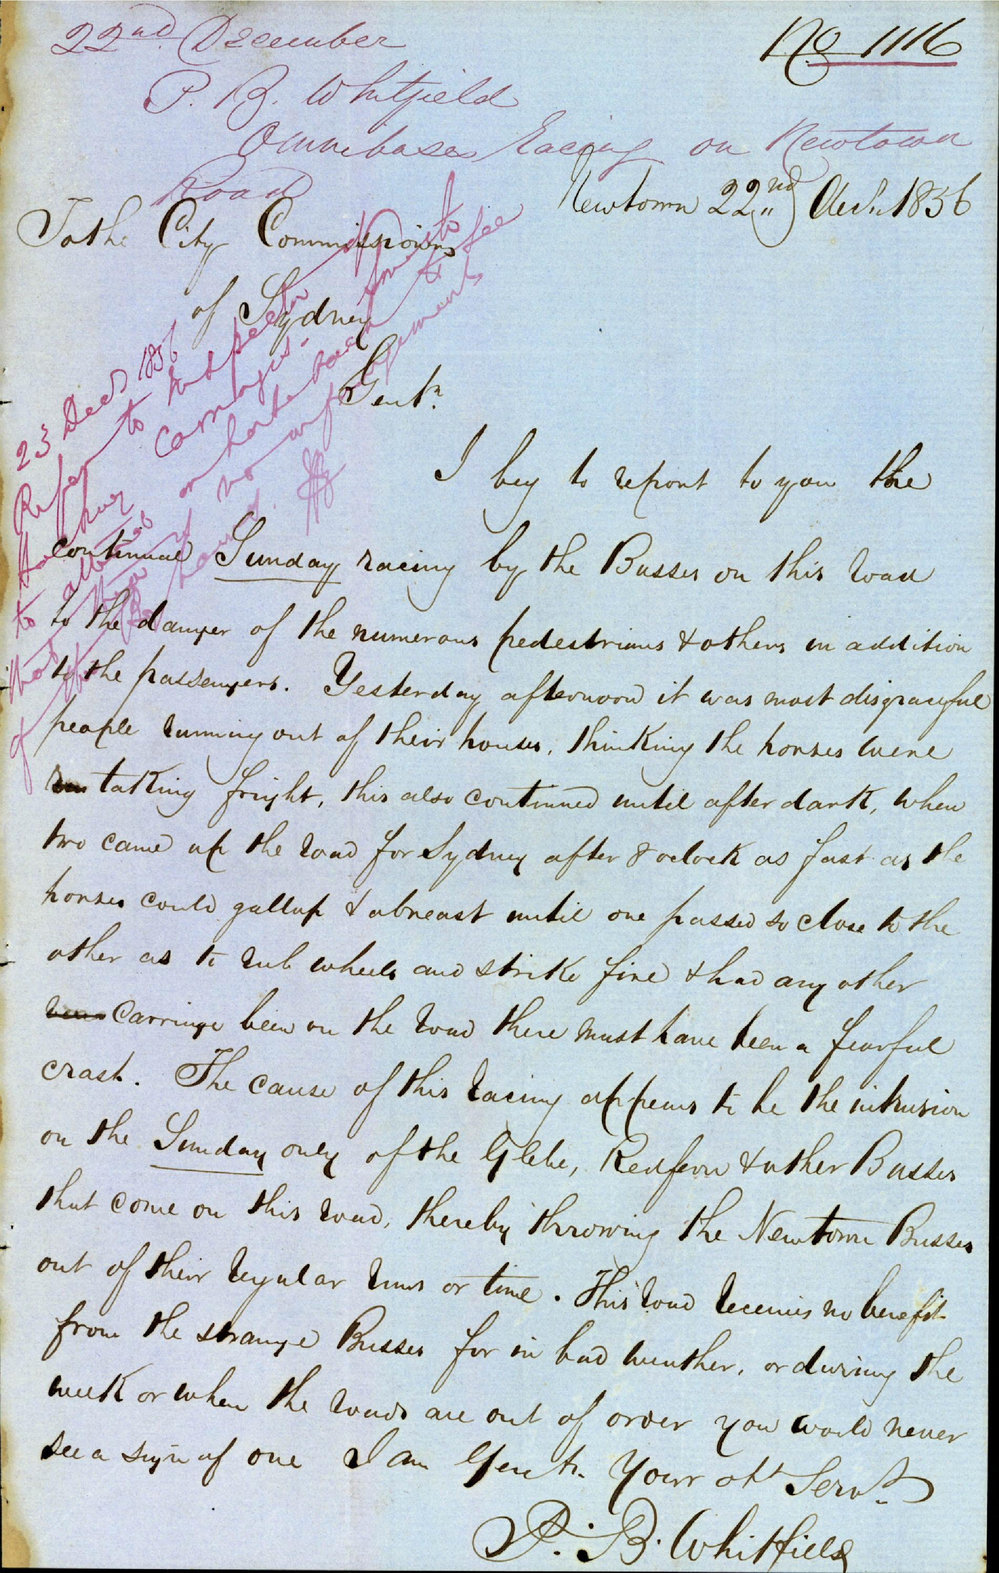 22nd. December
No 1116
P. B. Whitfield
Omnibases Racing on Newtown
Road
Newtown 22nd Dec. 1856
To the City Commissioners
of Sydney
Gentn.
I beg to report to you the
continual Sunday racing by the Busses on this road
to the danger of the numerous pedestrians & others in addition
to the passengers. Yesterday afternoon it was most disgraceful
people running out of their houses, thinking the horses were
taking fright, this also continued until after dark, when
two came up the road for Sydney after 8 oclock as fast as the
horses could gallup & abreast until one passed so close to the
other as to rub wheels and strike fire & had any other
Carriage been on the road there must have been a fearful
crash. The cause of this racing appears to be the intrusion
on the Sunday only of the Glebe, Redfern & other Busses
that come on this road, thereby throwing the Newtown Busses
out of their regular runs or time. This road receives no benefit
from the strange Busses for in bad weather, or during the
week or when the roads are out of order you would never
see a sign of one I am Gent. Your obt Servt
P. B. Whitfield
23 Decr 1856
Refer to Inspector of
Hackney Carriages
to
that on horseback to see
of no infringements